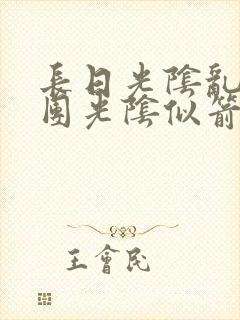 長日光陰亂
團光陰似箭
王會民